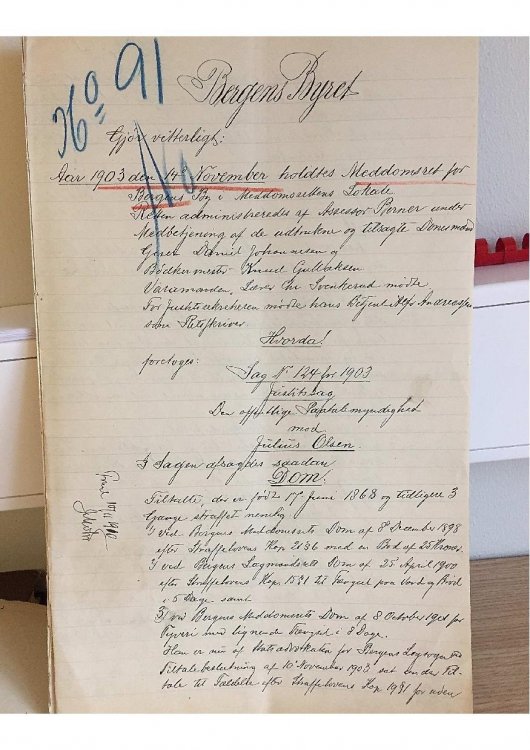 No 91
Bergens Byret
Gjör vitterligt:
Aar 1903 den 14de November holdtes Meddomsret for
Bergens By i Meddomsrettens Lokale
Retten administreredes af Assessor Berner under
Medbetjening af de udtrukne og tilsagte Domsmænd
Daniel Johannesen og
Bödkermester Knud Gulbaksen
Varamanden, Lærer Chr Svenkerud mödte
For Justitssekretæren mödte hans Betjent Alf Andreassen
som Retsskriver
Hvorda!
foretoges:
Sag No 124 for 1903
Justitssag
Den offentlige Paatalemyndighed
mod
Julius Olsen.
I Sagen afsagdes saadan
Dom:
Tiltalte, der er född 17 Juni 1868 og tidligere 3
Gange straffet nemlig
1 ved Bergens Meddomsrets Dom af 8de December 1898
efter Straffelovens Kap med en Bod af 25 Kroner
2 ved Bergens Lagmandsrets Dom af 25 April 1900
efter Straffelovens Kap til Fængsel paa Vand og Bröd
i 5 Dage samt
3) ved Bergens Meddomsrets Dom af 8 October 1901 for
Tyveri med lignende Fængsel i 8 Dage.
Han er nu af Statsadvokaten for Bergens
Tiltalebeslutning af 10de November 1903 sat under Til-
tale til Fældelse efter Straffelovens Kap for uden